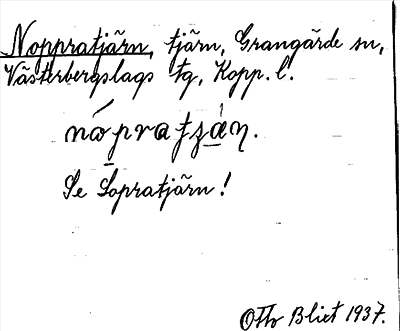 Noppratjärn, tjärn, Grangärde sn,
Västerbergslags tg, Kopp. l.
nópratzán.
Se Lopratjärn!
Otto Blixt 1937.